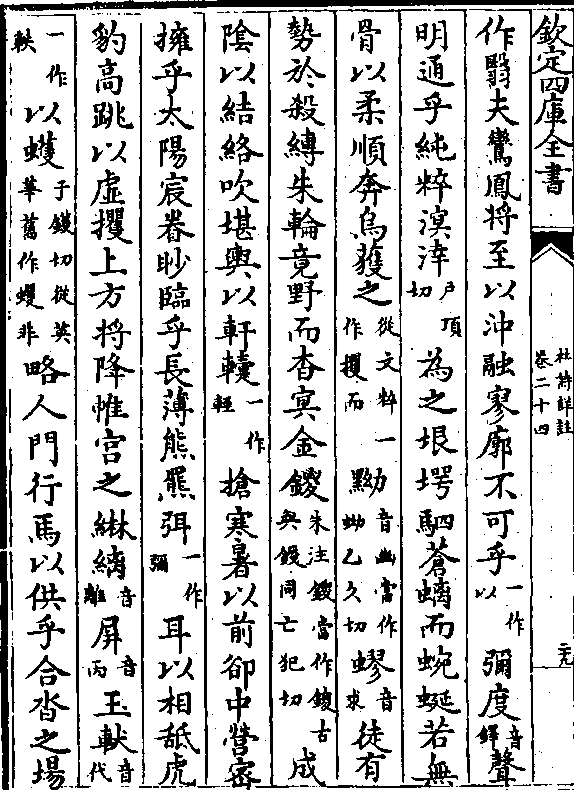 欽定四庫全書
杜詩詳註
卷二十四
作翳夫鸞鳳將至以沖融寥廓不可乎一作以彌度音鐸聲
明通乎純粹溟涬戶頂切為之垠堮駟蒼螭而蜿蜒若無
骨以柔順奔烏獲之從文粹一作攫而黝音幽當作蚴乙久切蟉音求徒有
勢於殺縛朱輪竟野而杳冥金鍐朱注鍐當作錽古與鋄同亡犯切成
陰以結絡吹堪輿以軒一作輕搶寒暑以前卻中營密
擁乎太陽宸眷眇臨乎長薄熊羆弭一作彌耳以相舐虎
豹高跳以虛攫上方將降帷宮之綝縭音離屏音丙玉軑音代
一作軼以蠖子鑊切從英華舊作蠼非略人門行馬以供乎合沓之場